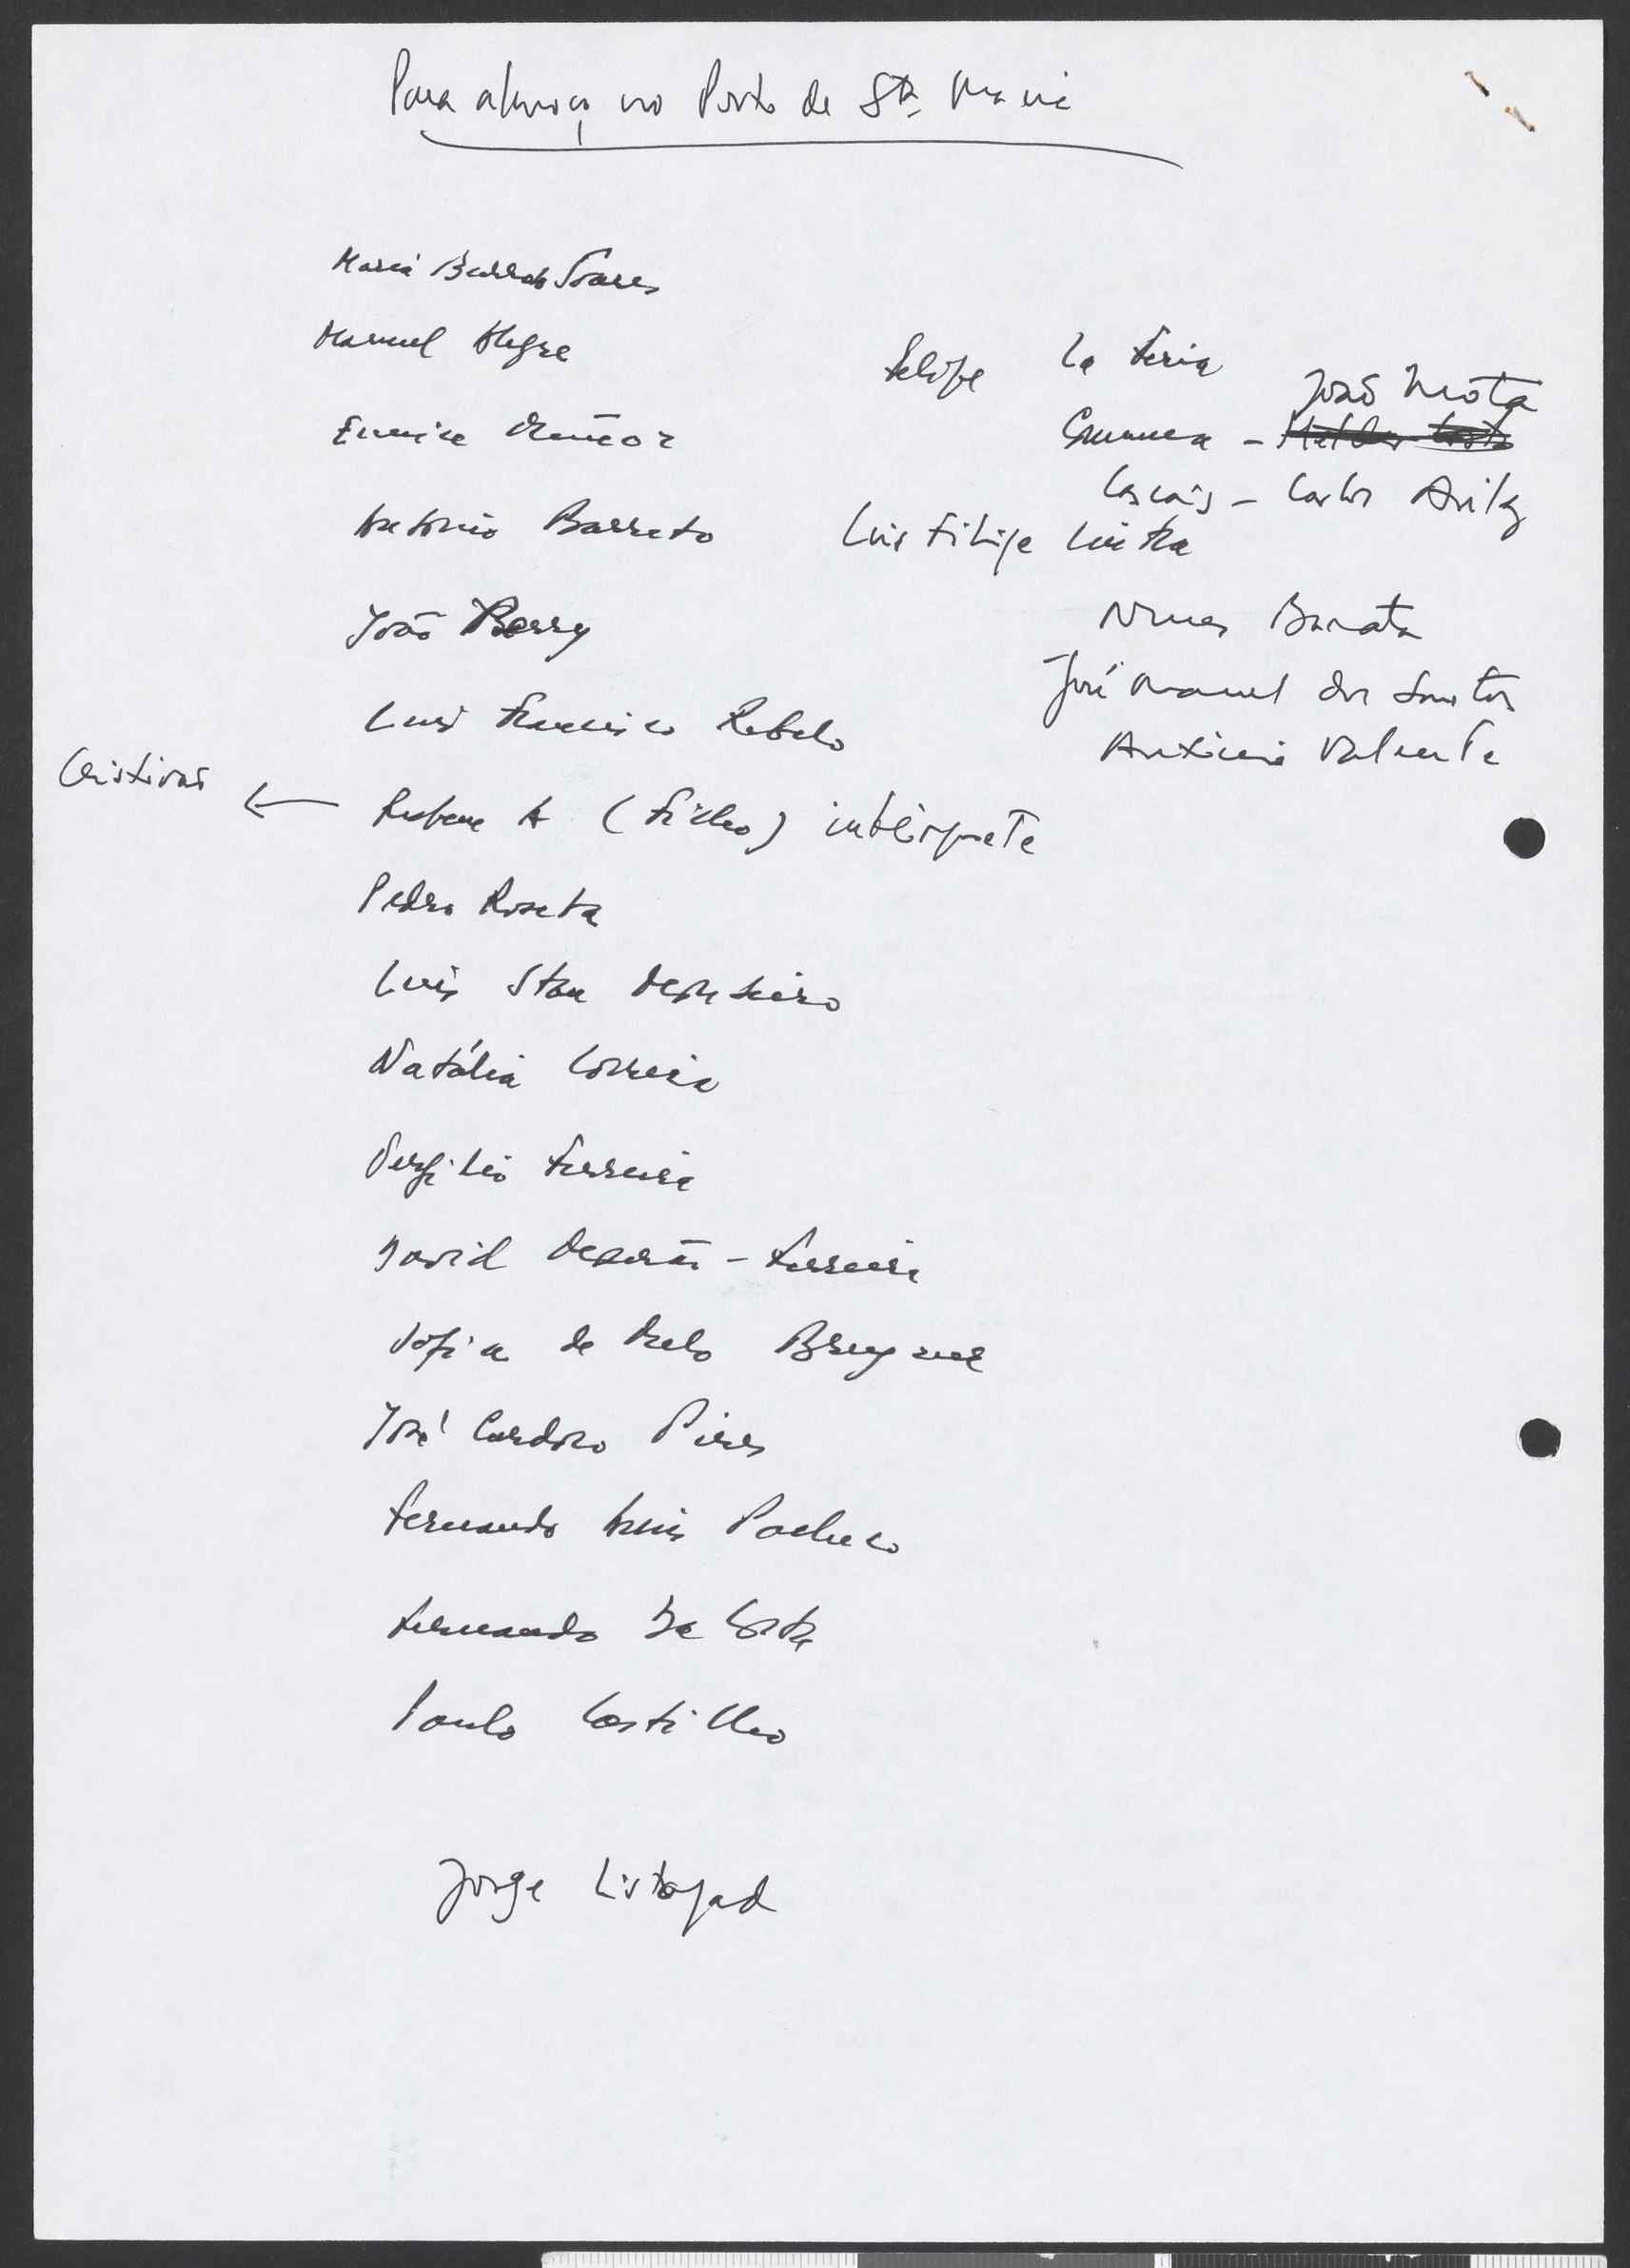 Para almoço no Porto de Sta. Maria
Maria Barroso Soares
Manuel Alegre
Eunice Muñoz
António Barreto
João Perry
Luis Francisco Rebelo
Cristivao ← Ruben A (Filho) intérprete
Pedro Roseta
Luis Stau Monteiro
Natália Correia
Vergílio Ferreira
David Mourão-Ferreira
Sofia de Melo Breyner
José Cardoso Pires
Fernando Luis Pacheco
Fernando Da Costa
Paulo Castilho
Jorge Listopad
Felipe La Feria
João Mota
Comuna -
Cascais - Carlos Avilez
Luis Filipe Cintra
Nunes Barata
José Manuel dos Santos
António Valente